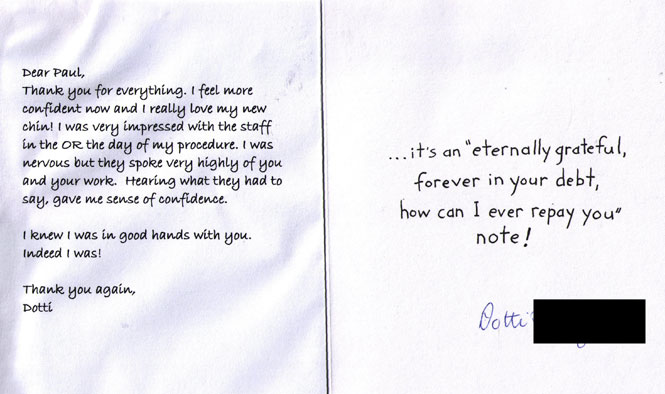 Dear Paul,
Thank you for everything. I feel more
confident now and I really love my new
chin! I was very impressed with the staff
in the OR the day of my procedure. I was
nervous but they spoke very highly of you
and your work.  Hearing what they had to
say, gave me sense of confidence.
I knew I was in good hands with you.
Indeed I was!
Thank you again,
Dotti
...it's an "eternally grateful,
forever in your debt,
how can I ever repay you"
note!
Dotti